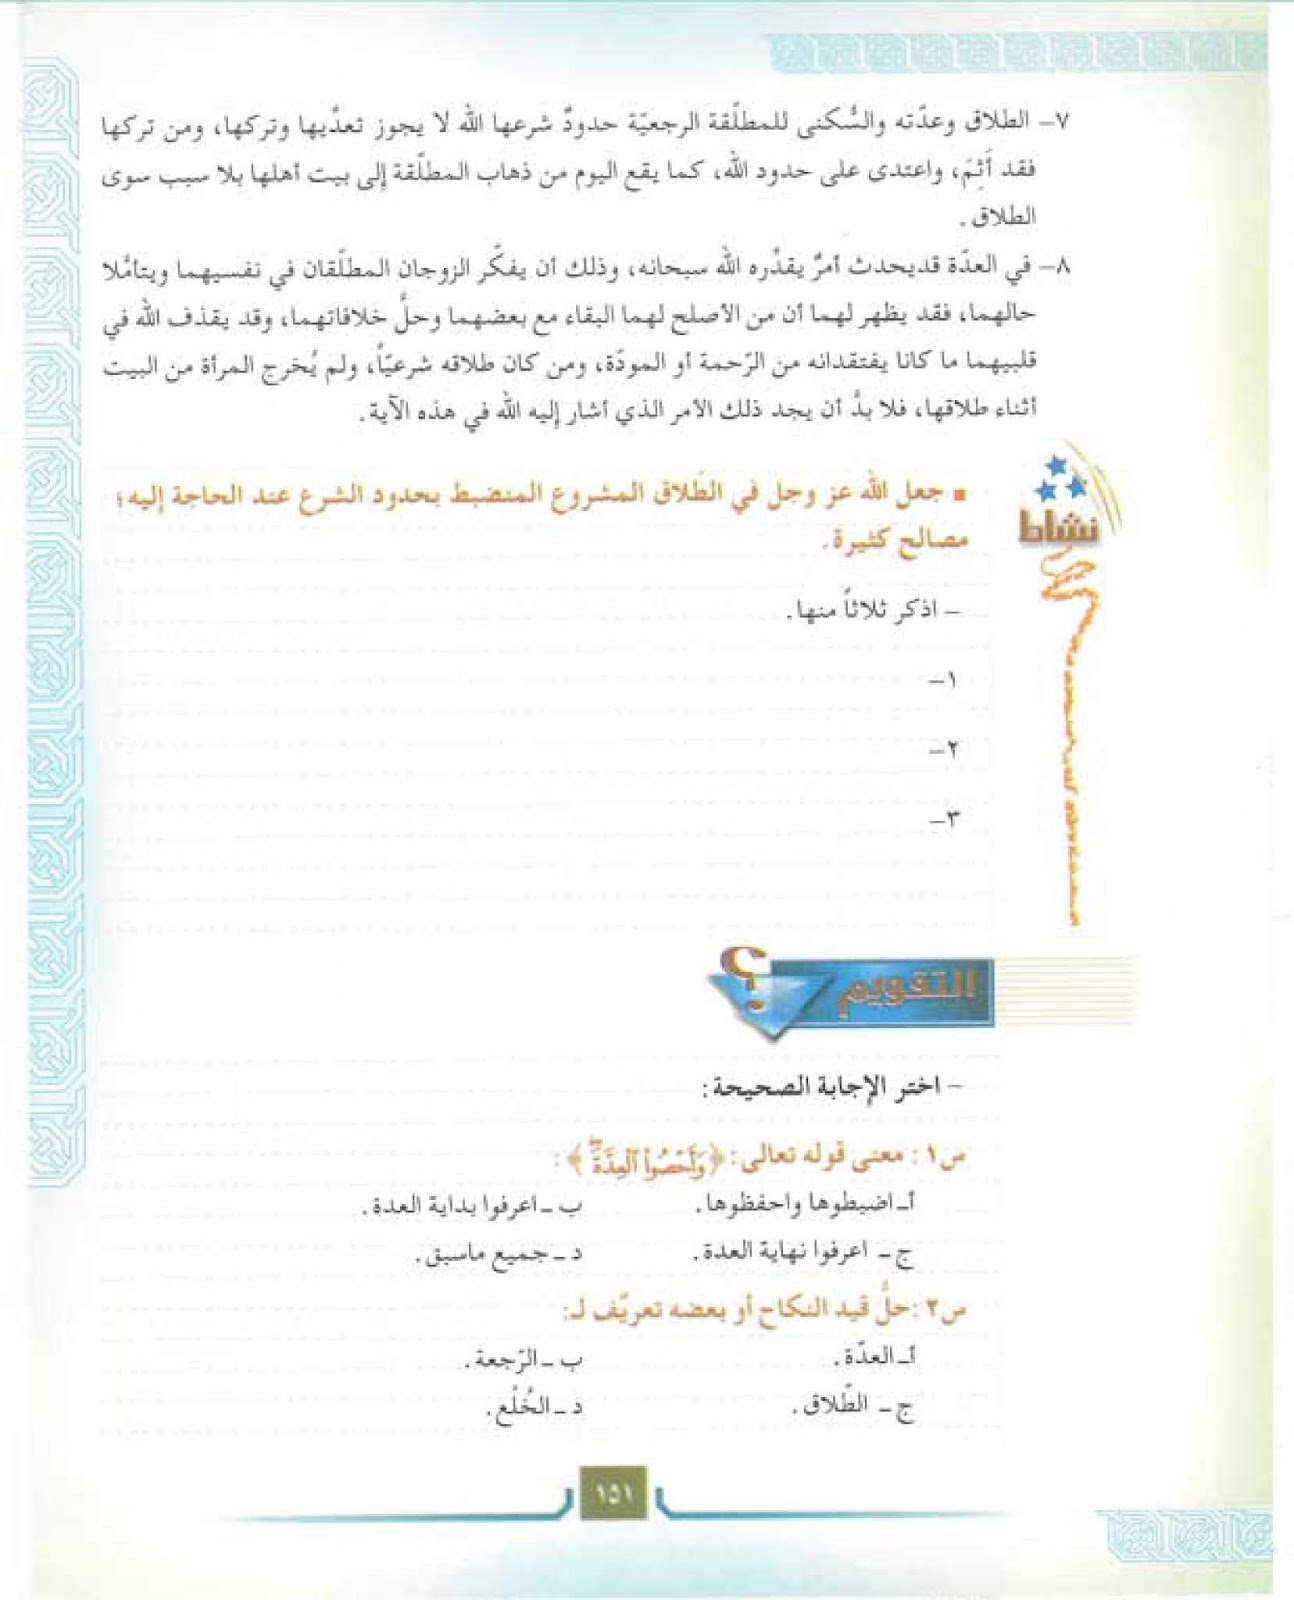 ٧- الطلاق وعدّته والسُّكنى للمطلّقة الرجعيّة حدودٌ شرعها الله لا يجوز تعدّيها وتركها، ومن تركها
فقد أَثِمَ، واعتدى على حدود الله، كما يقع اليوم من ذهاب المطلّقة إلى بيت أهلها بلا سبب سوى
الطلاق.
٨- في العدّة قد يحدث أمرٌ يقدّره الله سبحانه، وذلك أن يفكّر الزوجان المطلّقان في نفسيهما ويتأمّلا
حالهما، فقد يظهر لهما أن من الأصلح لهما البقاء مع بعضهما وحلُّ خلافاتهما، وقد يقذف الله في
قلبيهما ما كانا يفتقدانه من الرّحمة أو المودّة، ومن كان طلاقه شرعيّاً، ولم يُخرج المرأة من البيت
أثناء طلاقها، فلا بدَّ أن يجد ذلك الأمر الذي أشار إليه الله في هذه الآية.
نشاط
▪ جعل الله عز وجل في الطّلاق المشروع المنضبط بحدود الشرع عند الحاجة إليه؛
مصالح كثيرة.
- اذكر ثلاثاً منها.
١-
٢-
٣-
التقويم ؟
- اختر الإجابة الصحيحة:
س١: معنى قوله تعالى: ﴿وَأَحْصُوا۟ ٱلْعِدَّةَ ۖ﴾:
أ- اضبطوها واحفظوها. ب- اعرفوا بداية العدة.
ج- اعرفوا نهاية العدة. د- جميع ماسبق.
س٢: حلُّ قيد النكاح أو بعضه تعريّف لـ:
أ- العدّة. ب- الرّجعة.
ج- الطّلاق. د- الخُلْع.
١٥١